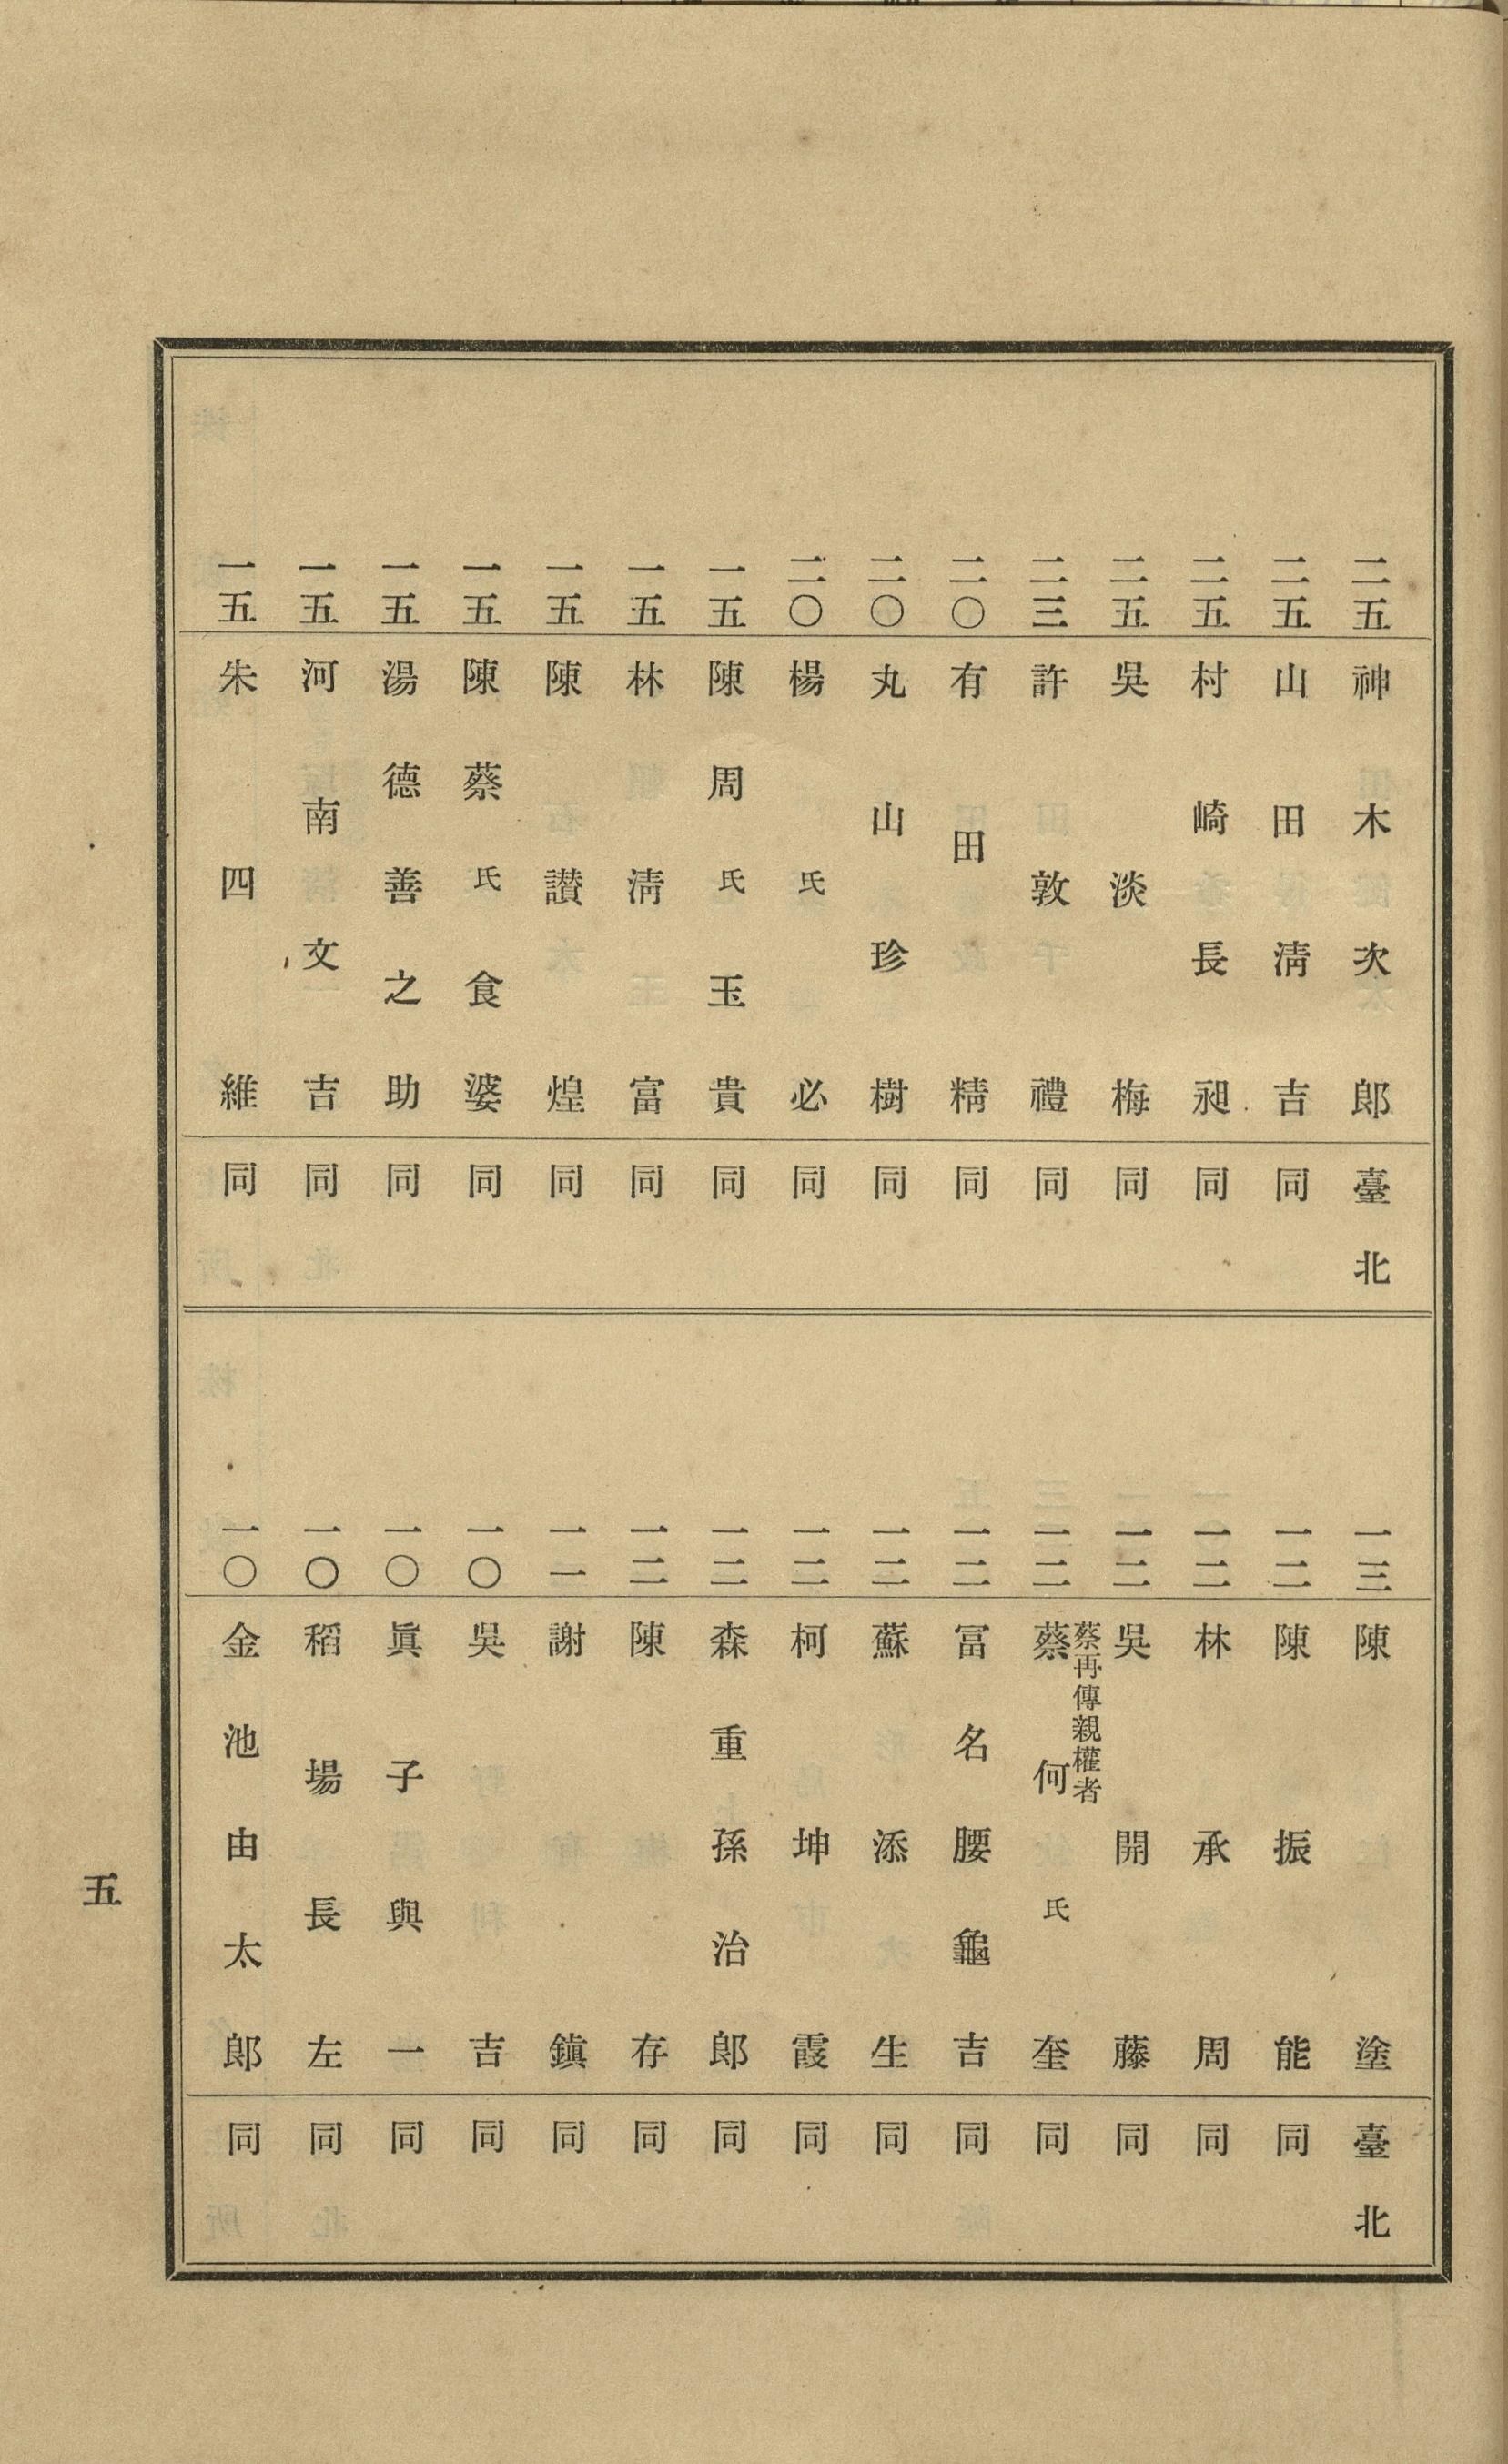 二五 神木次郎 臺北
二五 山田清吉 同
二五 村崎長昶 同
二五 吳淡梅 同
二三 許敦禮 同
二〇 有田精 同
二〇 丸山珍樹 同
二〇 楊氏必 同
一五 陳周氏玉貴 同
一五 林清富 同
一五 陳讃煌 同
一五 陳蔡氏食婆 同
一五 湯德善之助 同
一五 河南文吉 同
一五 朱四維 同
一三 陳塗 臺北
一二 陳振能 同
一二 林承周 同
一二 吳開藤 同
蔡再傳親權者
一二 蔡何氏奎 同
一二 冨名腰龜吉 同
一二 蘇添生 同
一二 柯坤霞 同
一二 森重孫治郎 同
一二 陳存 同
一一 謝鎭 同
一〇 吳吉 同
一〇 眞子與一 同
一〇 稻場長左 同
一〇 金池由太郎 同
五